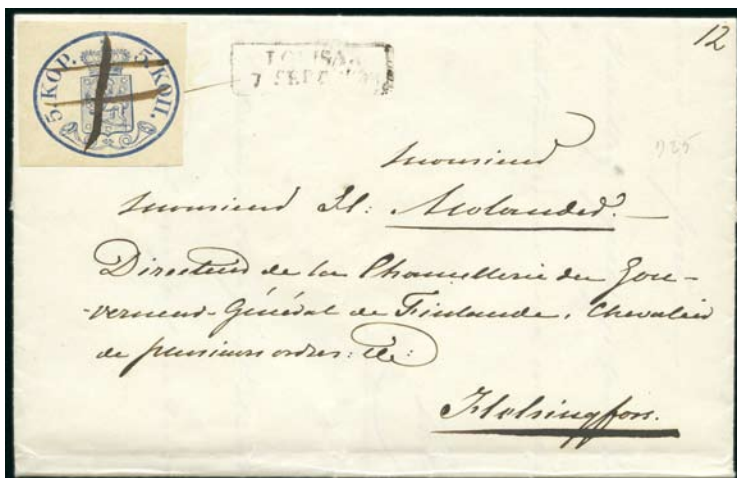 5.KOP. 5.КОП.
LOVISA
7 SEPT
12
925
Monsieur
Monsieur Al: Molander.
Directeur de la Chancellerie du Gou-
-verneur-Général de Finlande, Chevalier
de plusieurs ordres: etc:
Helsingfors.